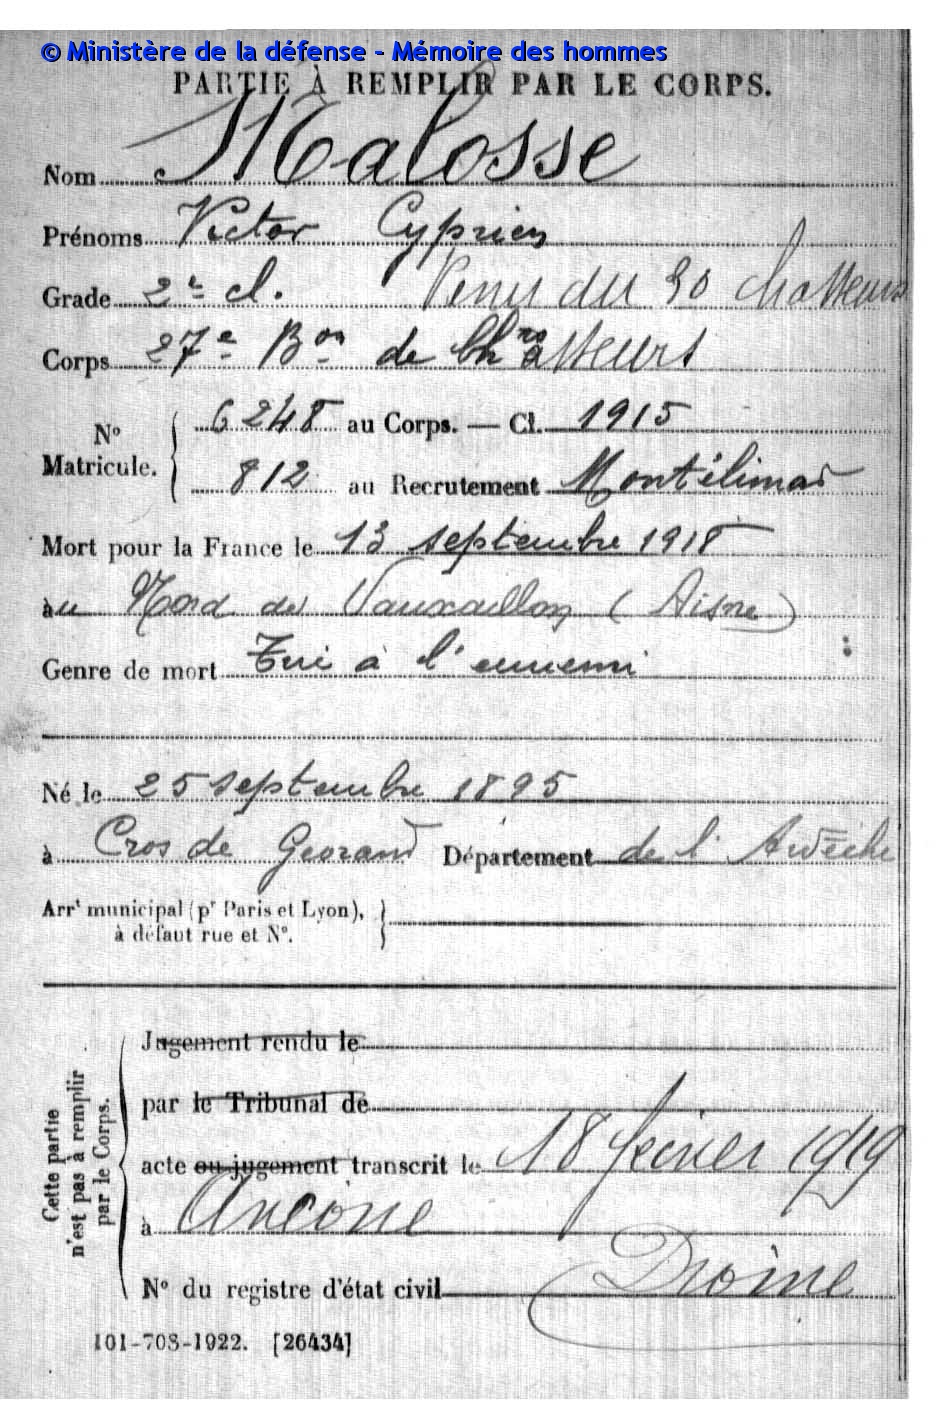 © Ministère de la défense - Mémoire des hommes
PARTIE À REMPLIR PAR LE CORPS.
Nom Malosse
Prénoms Victor Cyprien
Grade 2e cl. Venu du 30 chasseurs
Corps 27e Bon de Chasseurs
No Matricule. 6248 au Corps. — Cl. 1915
812 au Recrutement Montélimar
Mort pour la France le 13 septembre 1918
au Nord de Vauxaillon (Aisne)
Genre de mort Tué à l'ennemi
Né le 25 septembre 1895
à Cros de Georand Département de l'Ardèche
Arrt municipal (pr Paris et Lyon),
à défaut rue et No.
Cette partie n'est pas à remplir par le Corps.
Jugement rendu le
par le Tribunal de
acte ou jugement transcrit le 18 février 1919
à Ancône
Drôme
No du registre d'état civil
101-708-1922. [26434]